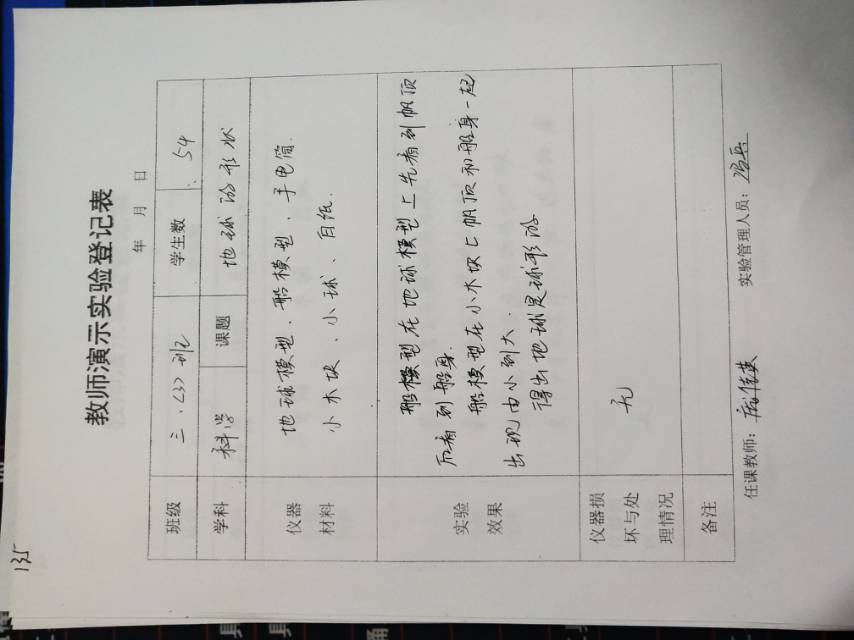 135
教师演示实验登记表
年 月 日
班级 三.<3>班 学生数 54
学科 科学 课题 地球的形状
仪器 地球模型、船模型、手电筒.
材料 小木块、小球、白纸.
船模型在地球模型上先看到帆顶
实验 而看到船身.
船模型在小木块上帆顶和船身一起
效果 出现由小到大.
得出地球是球形的
仪器损
坏与处 无
理情况
备注
任课教师: 实验管理人员: